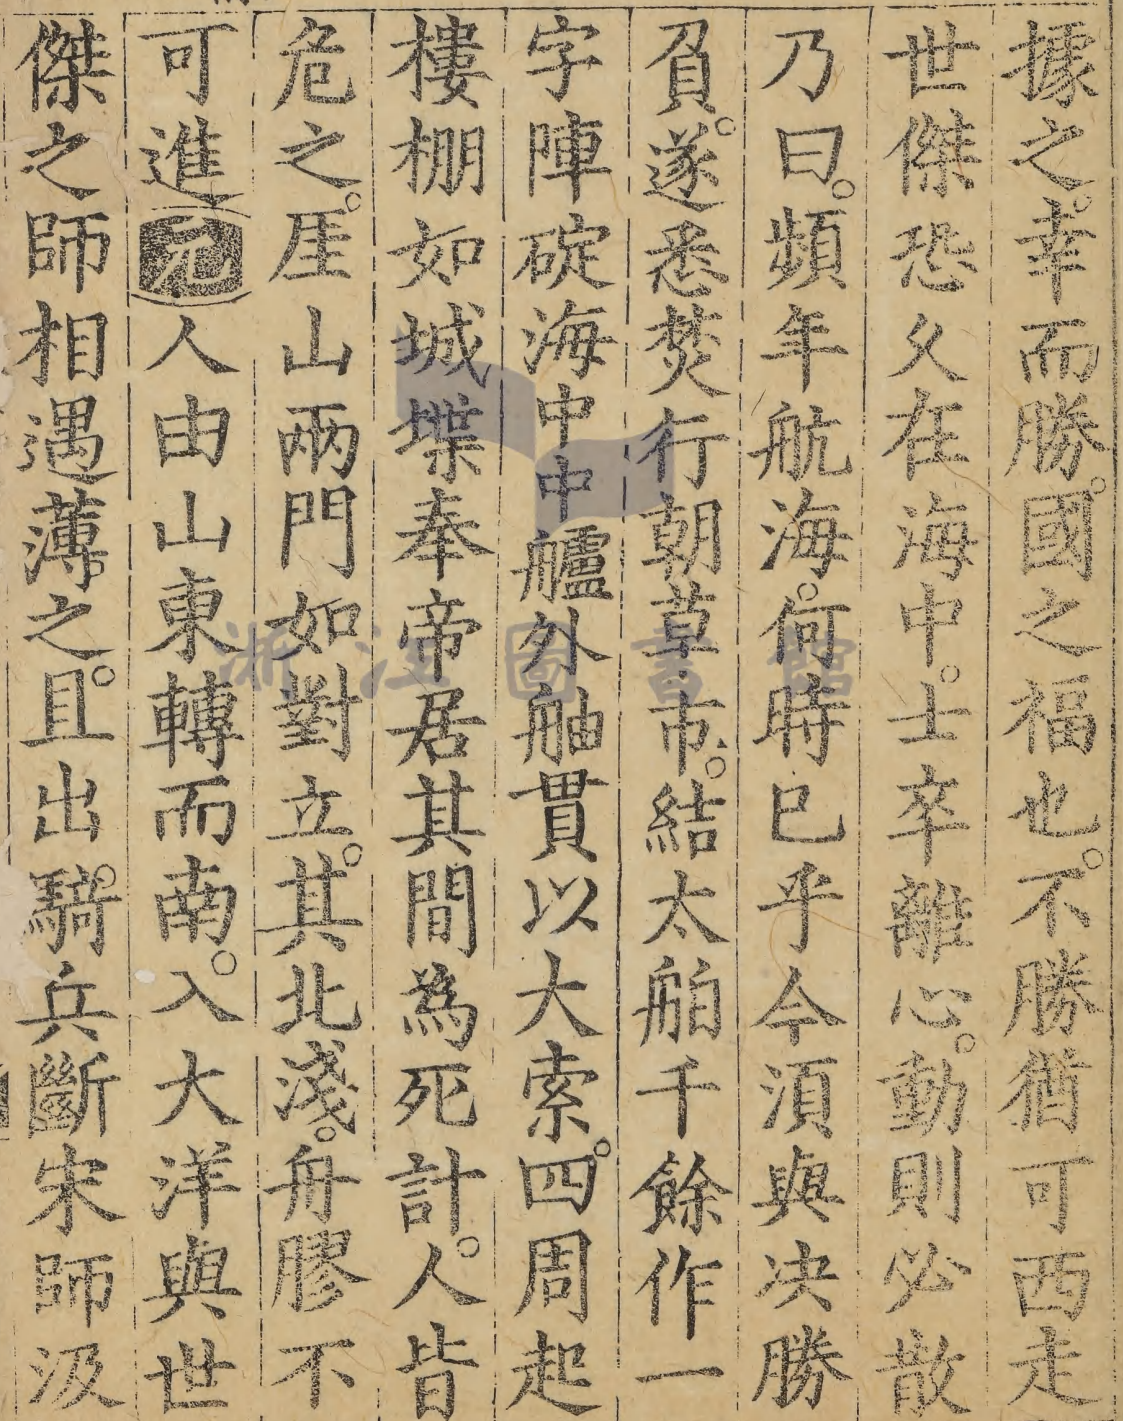 據之。幸而勝。國之福也。不勝猶可西走
世傑恐久在海中。士卒離心。動則必散
乃曰。頻年航海。何時已乎今須與决勝
負。遂悉焚行朝草市。結太舶千餘作一
字陣碇海中中艫外舳貫以大索。四周起
樓棚如城堞奉帝居其間為死計。人皆
危之。厓山兩門如對立。其北淺。舟膠不
可進元人由山東轉而南。入大洋與世
傑之師相遇薄之。且出騎兵斷宋師汲
浙江圖書館